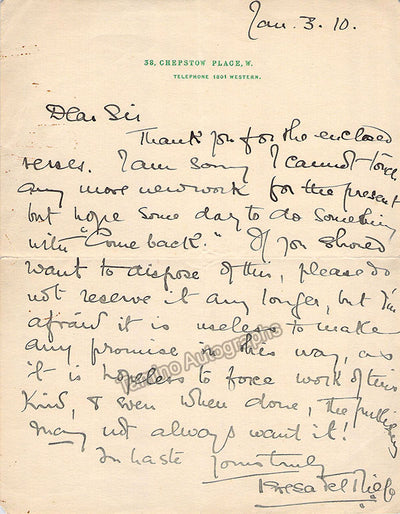 Jan. 3. 10.
38, CHEPSTOW PLACE, W.
TELEPHONE 1801 WESTERN.
Dear Sir
Thank you for the enclosed
verses. I am sorry I cannot take
any more new work for the present
but hope some day to do something
with "Come back." If you should
want to dispose of this, please do
not reserve it any longer, but I'm
afraid it is useless to make
any promise in this way, as
it is hopeless to force work of this
kind, & even when done, the publishers
may not always want it!
In haste Yours truly
Teresa del Riego
Tamino Autographs